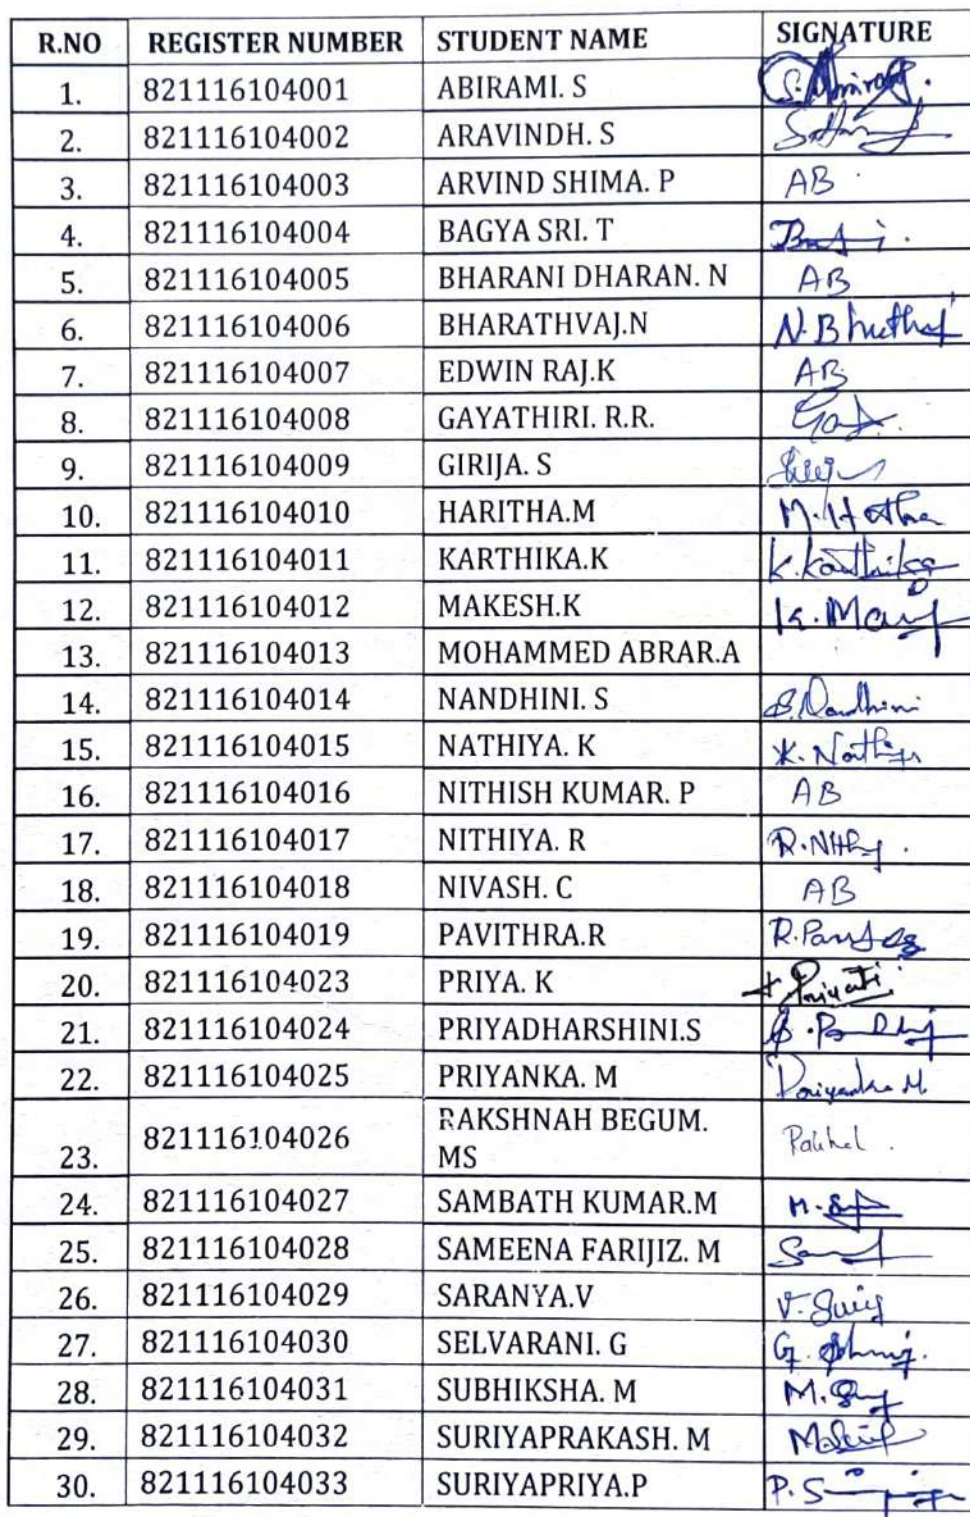 R.NO REGISTER NUMBER STUDENT NAME SIGNATURE
1. 821116104001 ABIRAMI. S
2. 821116104002 ARAVINDH. S
3. 821116104003 ARVIND SHIMA. P AB
4. 821116104004 BAGYA SRI. T
5. 821116104005 BHARANI DHARAN. N AB
6. 821116104006 BHARATHVAJ.N
7. 821116104007 EDWIN RAJ.K AB
8. 821116104008 GAYATHIRI. R.R.
9. 821116104009 GIRIJA. S
10. 821116104010 HARITHA.M
11. 821116104011 KARTHIKA.K K.Karthika
12. 821116104012 MAKESH.K
13. 821116104013 MOHAMMED ABRAR.A
14. 821116104014 NANDHINI. S S.Nandhini
15. 821116104015 NATHIYA. K K. Nathiya
16. 821116104016 NITHISH KUMAR. P AB
17. 821116104017 NITHIYA. R
18. 821116104018 NIVASH. C AB
19. 821116104019 PAVITHRA.R
20. 821116104023 PRIYA. K
21. 821116104024 PRIYADHARSHINI.S
22. 821116104025 PRIYANKA. M Priyanka M
23. 821116104026 RAKSHNAH BEGUM.
MS
24. 821116104027 SAMBATH KUMAR.M
25. 821116104028 SAMEENA FARIJIZ. M
26. 821116104029 SARANYA.V
27. 821116104030 SELVARANI. G
28. 821116104031 SUBHIKSHA. M
29. 821116104032 SURIYAPRAKASH. M
30. 821116104033 SURIYAPRIYA.P